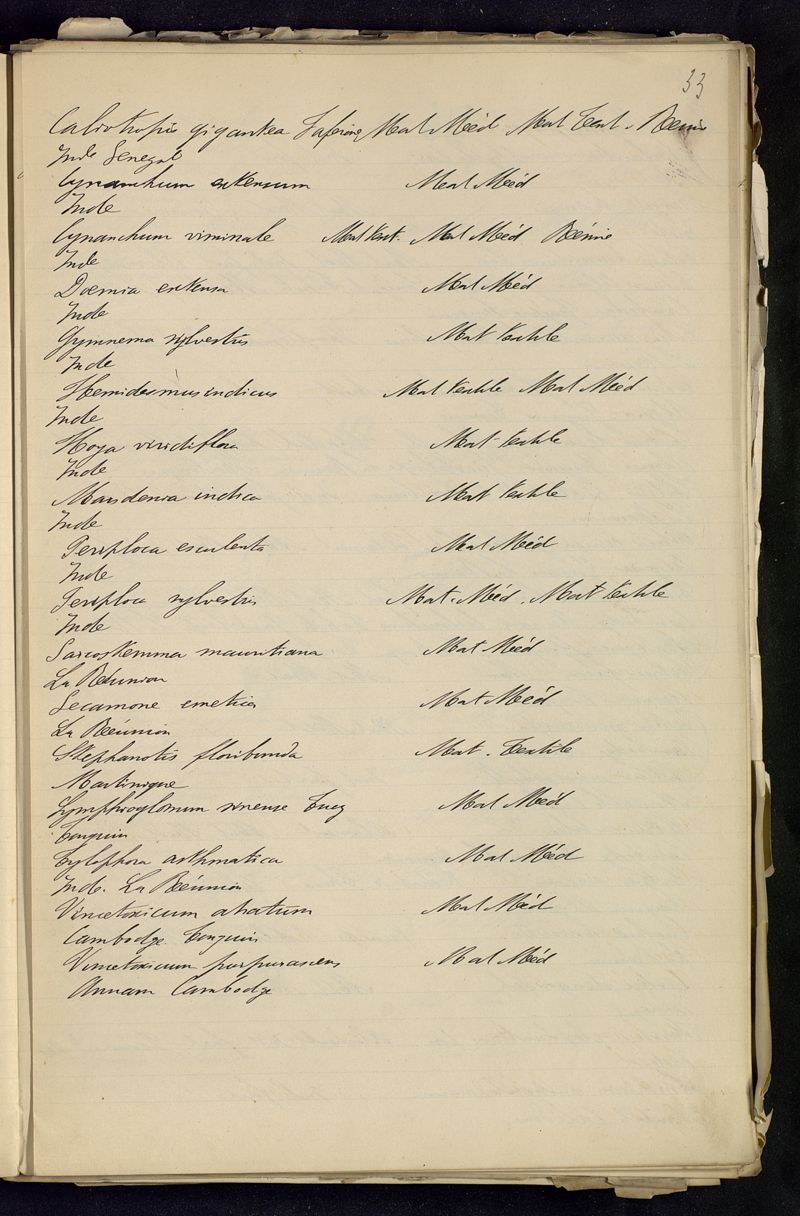 33
Calotropis gigantea Mat Méd. Mat Text.
Inde Senegal
Cynanchum extensum Mat Méd
Inde
Cynanchum viminale Mat text. Mat Méd Résine
Inde
Doemia extensa Mat Méd
Inde
Gymnema sylvestris Mat textile
Inde
Hemidesmus indicus Mat textile Mat Méd
Inde
Hoya viridiflora Mat textile
Inde
Marsdenia indica Mat textile
Inde
Periploca esculenta Mat Méd
Inde
Periploca sylvestris Mat. Méd. Mat textile
Inde
Sarcostemma mauritiana Mat Méd
La Réunion
Secamone emetica Mat Méd
La Réunion
Stephanotis floribunda Mat. Textile
Martinique
sinense Mat Méd
Tonquin
Tylophora asthmatica Mat Méd
Inde. La Réunion
Vincetoxicum atratum Mat Méd
Cambodge Tonquin
Vincetoxicum purpurascens Mat Méd
Annam Cambodge